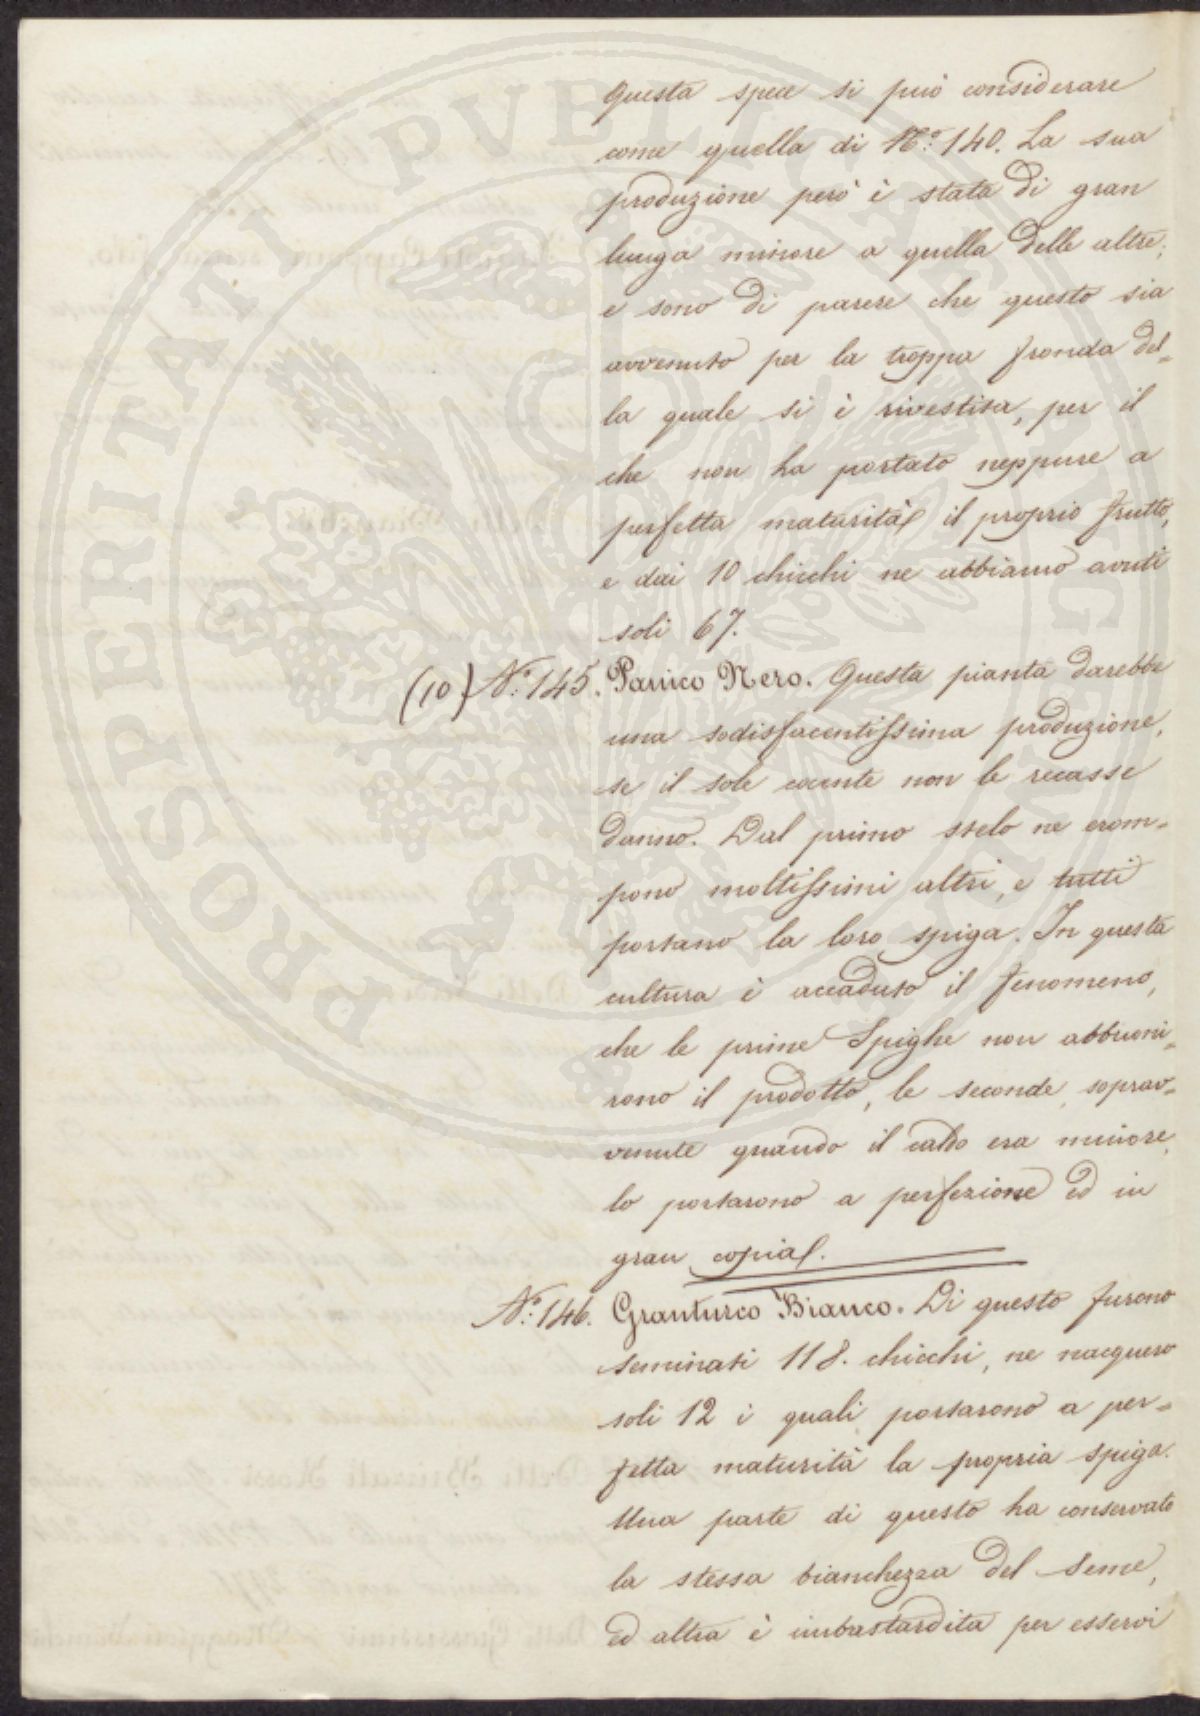 Questa spece si può considerare
come quella di N.º 140. La sua
produzione però è stata di gran
lunga minore a quella delle altre;
e sono di parere che questo sia
avvenuto per la troppa fronda del=
la quale si è rivestita, per il
che non ha portato neppure a
perfetta maturità il proprio frutto,
e dai 10 chicchi ne abbiamo avuti
soli 67.
(10) N.º 145. Panico Nero. Questa pianta darebbe
una sodisfacentissima produzione,
se il sole cocente non le recasse
danno. Dal primo stelo ne erom=
pono moltissimi altri, e tutti
portano la loro spiga. In questa
cultura è accaduto il fenomeno,
che le prime Spighe non abbuoni=
rono il prodotto, le seconde soprav=
venute quando il caldo era minore,
lo portarono a perfezione ed in
gran copia.
N.º 146. Granturco Bianco. Di questo furono
seminati 118. chicchi, ne nacquero
soli 12 i quali portarono a per=
fetta maturità la propria spiga.
Una parte di questo ha conservato
la stessa bianchezza del seme,
ed altra è imbastardita per esservi
PROSPERITATI PVBLICAE AVGENDAE